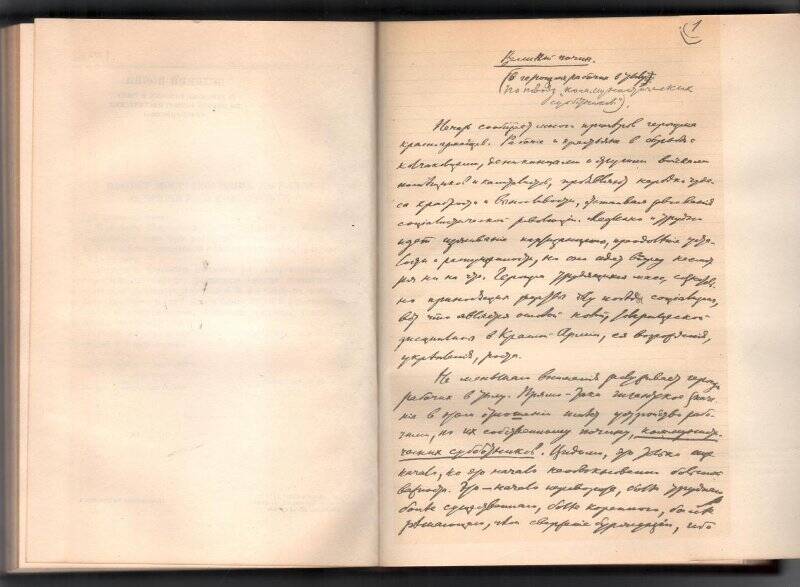 1
Великий почин.
(О героизме рабочих в тылу.
По поводу „коммунистических
субботников“).
Печать сообщает много примеров героизма
красноармейцев. Рабочие и крестьяне в борьбе с
колчаковцами, деникинцами и другими войсками
помещиков и капиталистов, проявляют нередко чуде-
са храбрости и выносливости, отстаивая завоевания
социалистической революции. Медленно и трудно
идет изживание партизанщины, преодоление уста-
лости и распущенности, но оно идет вперед несмот-
ря ни на что. Героизм трудящихся масс, сознатель-
но приносящих жертвы делу победы социализма,
вот что является основой новой, товарищеской
дисциплины в Красной Армии, ее возрождения,
укрепления, роста.
Не меньшего внимания заслуживает героизм
рабочих в тылу. Прямо-таки гигантское значе-
ние в этом отношении имеет устройство рабо-
чими, по их собственному почину, коммунисти-
ческих субботников. Видимо, это только еще
начало, но это начало необыкновенно большой
важности. Это — начало переворота, более трудного,
более существенного, более коренного, более
решающего, чем свержение буржуазии, ибо